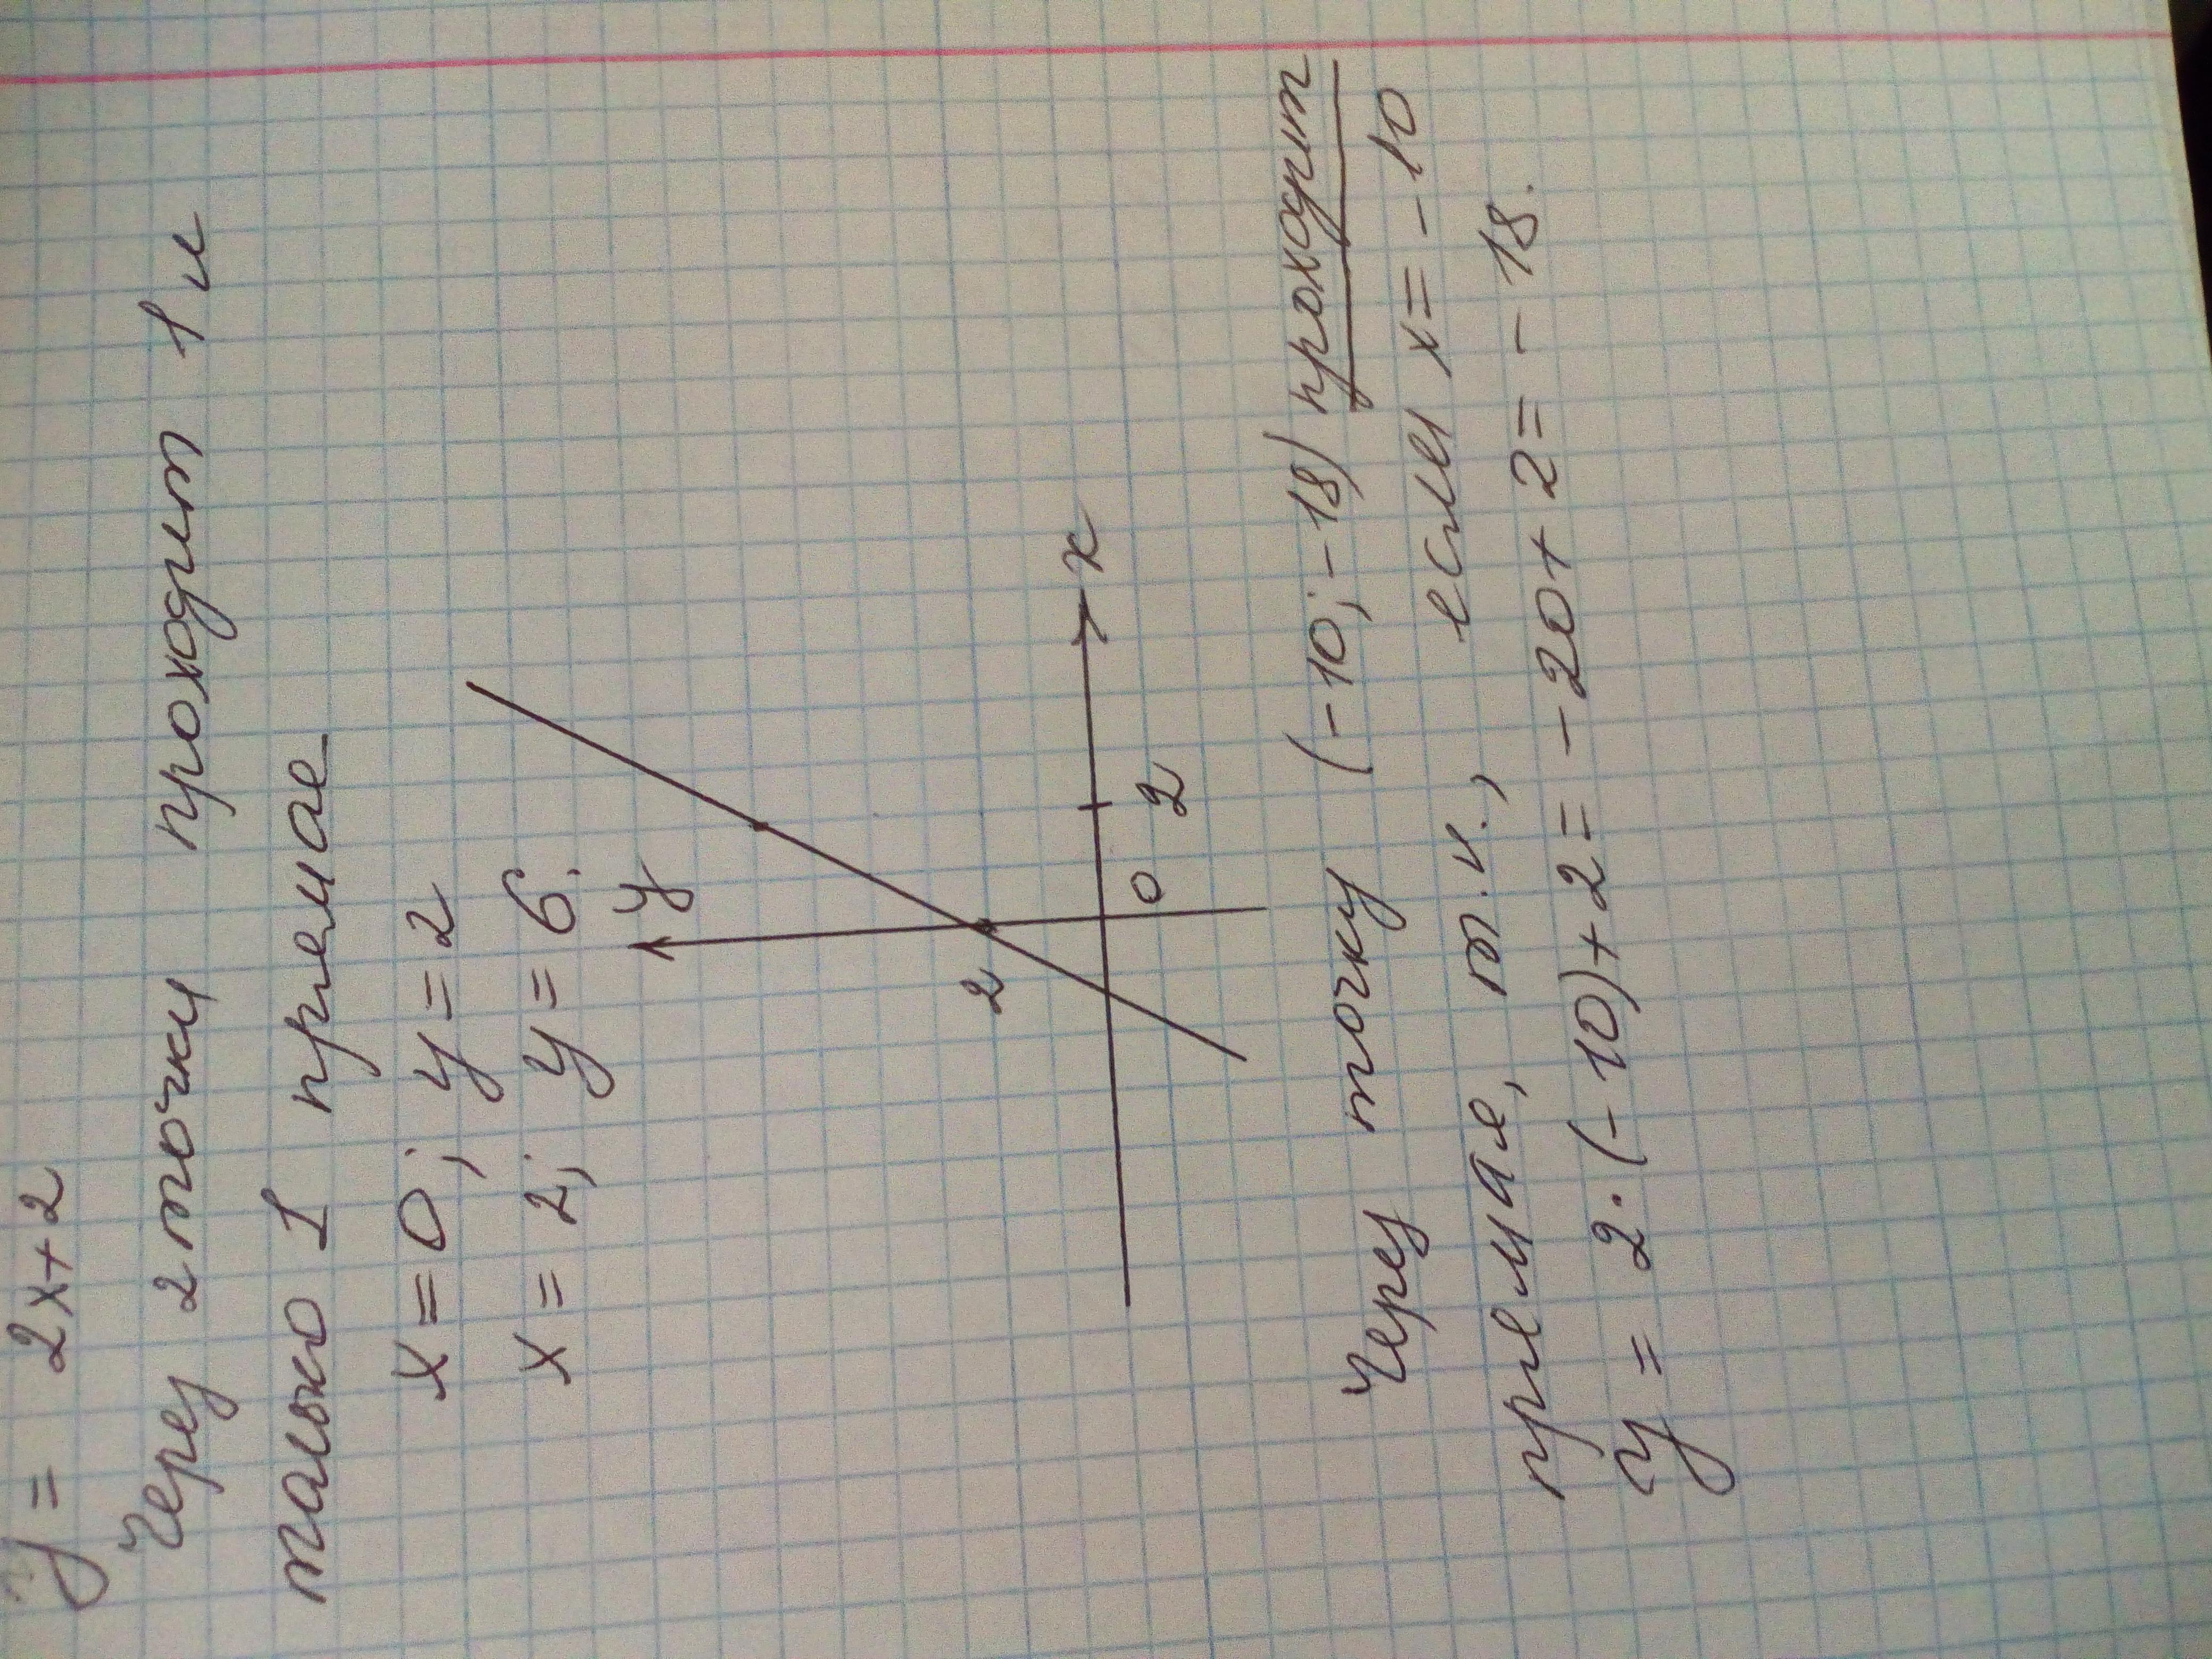 y = 2x+2
Через 2 точки проходит 1 и
только 1 прямая
x = 0; y = 2
x = 2; y = 6.
y
2
0
2
x
Через точку (-10; -18) проходит
прямая, т.к., если x = -10
y = 2·(-10)+2 = -20+2 = -18.